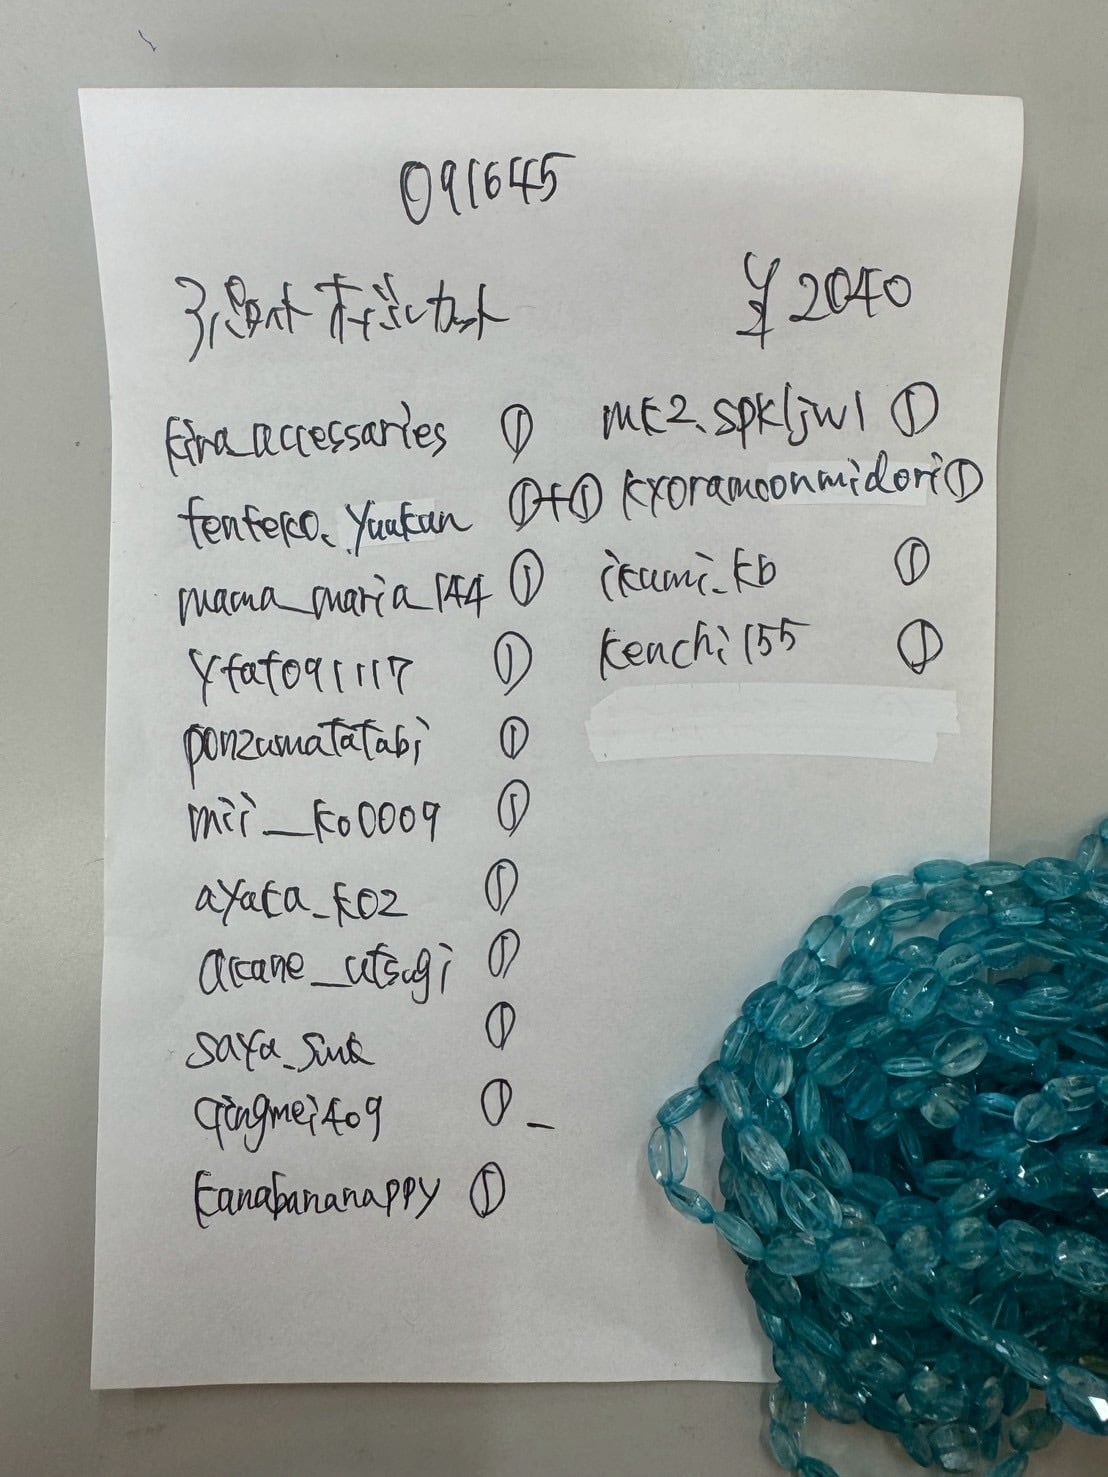 091645
¥2040
kira_accessaries ①
tenteko.yuukun ①+①
mama_maria_144 ①
yfaf091117 ①
ponzumatatabi ①
mii__ko0009 ①
ayaka_k02 ①
arcane_utsugi ①
saya_smk ①
qingmei409 ①
kanabananappy ①
mk2.spkljwl ①
kyoramoonmidori ①
ikumi_kb ①
kenchi155 ①